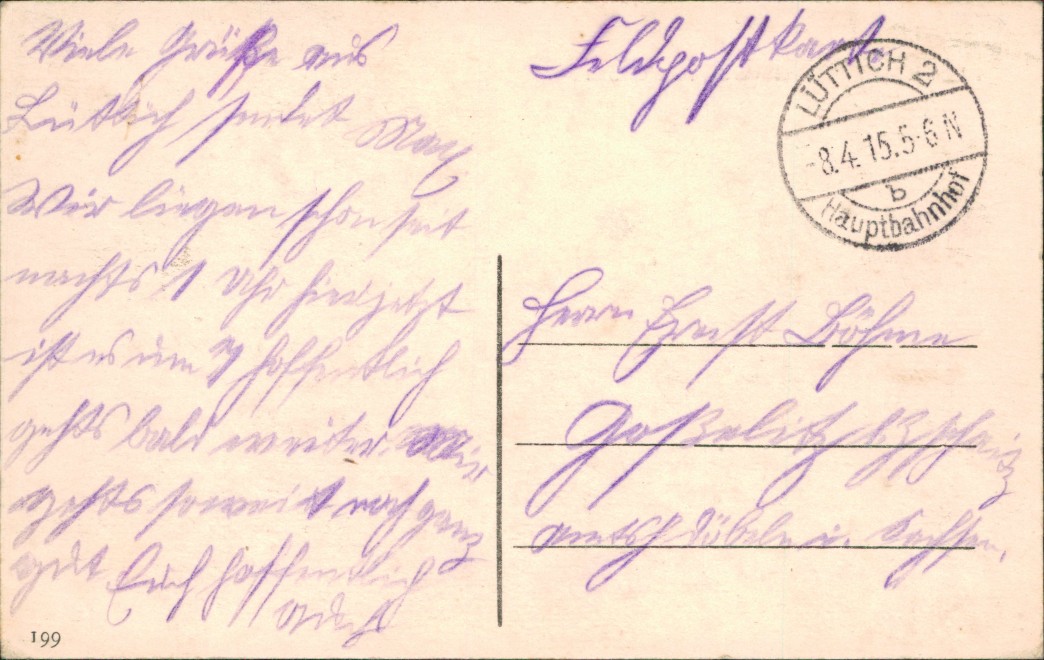 Viele Grüße aus
Lüttich sendet Max
Wir liegen schon seit
nachts 1 Uhr hier jetzt
ist es um 7 hoffentlich
gehts bald weiter. Mir
gehts soweit noch ganz
gut Euch hoffentlich
auch
199
Feldpostkarte
LÜTTICH 2
8.4.15.5-6 N
b
Hauptbahnhof
Herrn Ernst Böhme
amtsh Döbeln i. Sachsen.